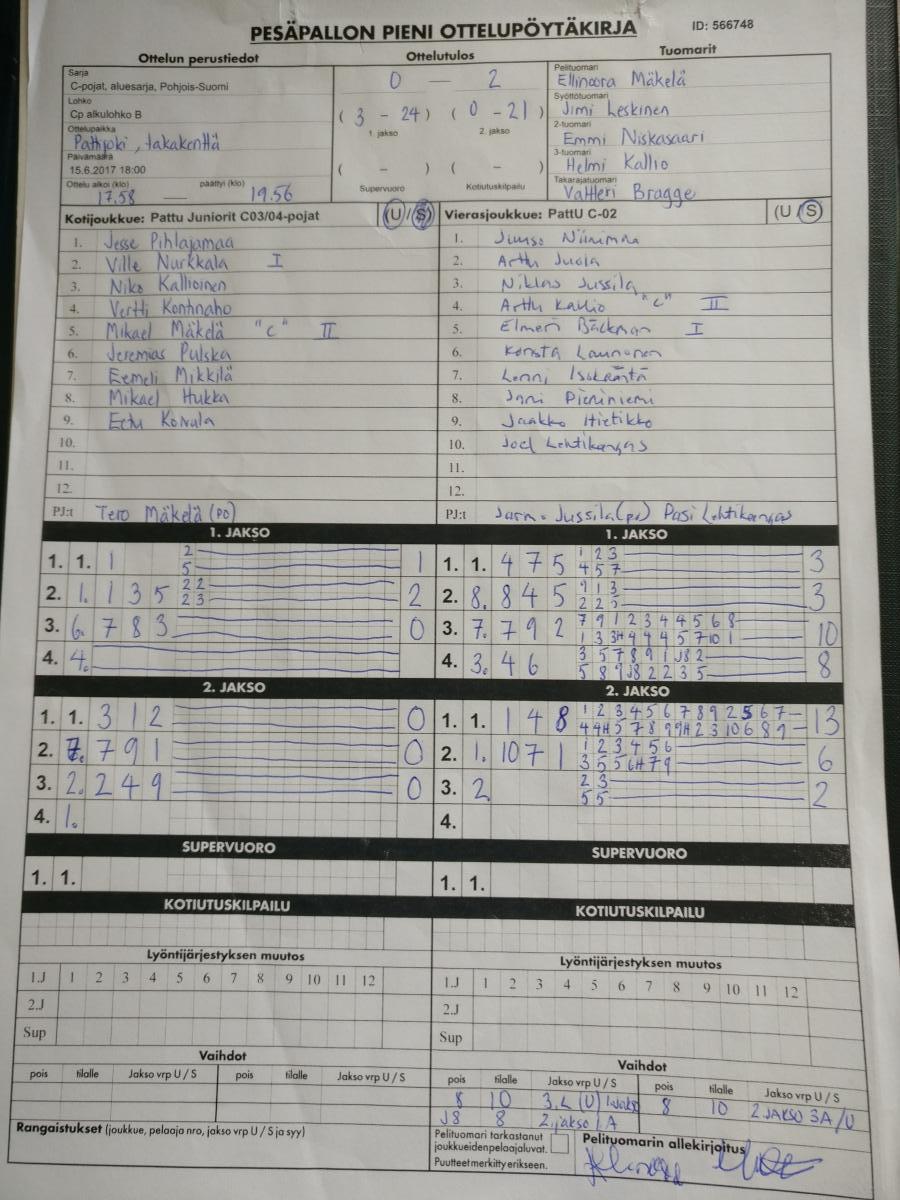 PESÄPALLON PIENI OTTELUPÖYTÄKIRJA
ID: 566748
Ottelun perustiedot
Sarja
C-pojat, aluesarja, Pohjois-Suomi
Lohko
Cp alkulohko B
Ottelupaikka
Pattijoki, takakenttä
Päivämäärä
15.6.2017 18:00
Ottelu alkoi (klo) päättyi (klo)
17.58 — 19.56
Ottelutulos
0 — 2
( 3 - 24 ) ( 0 - 21 )
1. jakso 2. jakso
( - ) ( - )
Supervuoro Kotiutuskilpailu
Tuomarit
Pelituomari
Ellinoora Mäkelä
Syöttötuomari
Jimi Leskinen
2-tuomari
Emmi Niskasaari
3-tuomari
Helmi Kallio
Takarajatuomari
Valtteri Bragge
Kotijoukkue: Pattu Juniorit C03/04-pojat (U/S)
1. Jesse Pihlajamaa
2. Ville Nurkkala I
3. Niko Kallioinen
4. Vertti Kontinaho
5. Mikael Mäkelä "C" II
6. Jeremias Pulska
7. Eemeli Mikkilä
8. Mikael Hukka
9. Eetu Koivula
10.
11.
12.
PJ:t Tero Mäkelä (PO)
Vierasjoukkue: PattU C-02 (U/S)
1. Niinimaa
2. Arttu Juola
3. Niklas Jussila
4. Arttu Kallio "C" II
5. Elmeri Bäckman I
6. Konsta Launonen
7. Lenni Isokääntä
8. Jani Pieniniemi
9. Jaakko Hietikko
10. Joel Lehtikangas
11.
12.
PJ:t Jarmo Jussila (pe) Pasi Lehtikangas
1. JAKSO
1. 1. 1 2 1
5
2. 1. 1 3 5 2 2 2
2 3
3. 6. 7 8 3 0
4. 4.
1. JAKSO
1. 1. 4 7 5 1 2 3 3
4 5 7
2. 8. 8 4 5 9 1 3 3
2 2 5
3. 7. 7 9 2 7 9 1 2 3 4 4 5 6 8 10
1 3 3H 4 4 4 5 7 10 1
4. 3. 4 6 3 5 7 8 9 1 J8 2 8
5 8 9 J8 2 2 3 5
2. JAKSO
1. 1. 3 1 2 0
2. 7. 7 9 1 0
3. 2. 2 4 9 0
4. 1.
2. JAKSO
1. 1. 1 4 8 1 2 3 4 5 6 7 8 9 2 5 6 7 13
4 4H 5 7 8 9 9H 2 3 10 6 8 9
2. 1. 10 7 1 1 2 3 4 5 6 6
3 5 5 6H 7 9
3. 2. 2 3 2
5 5
4.
SUPERVUORO
1. 1.
SUPERVUORO
1. 1.
KOTIUTUSKILPAILU
KOTIUTUSKILPAILU
Lyöntijärjestyksen muutos
1.J 1 2 3 4 5 6 7 8 9 10 11 12
2.J
Sup
Lyöntijärjestyksen muutos
1.J 1 2 3 4 5 6 7 8 9 10 11 12
2.J
Sup
Vaihdot
pois tilalle Jakso vrp U / S pois tilalle Jakso vrp U / S
Vaihdot
pois tilalle Jakso vrp U / S pois tilalle Jakso vrp U / S
8 10 8 10 2 JAKSO 3A/U
J8 8 2. jakso 1 A
Rangaistukset (joukkue, pelaaja nro, jakso vrp U / S ja syy)
Pelituomari tarkastanut
joukkueidenpelaajaluvat.
Puutteet merkitty erikseen.
Pelituomarin allekirjoitus